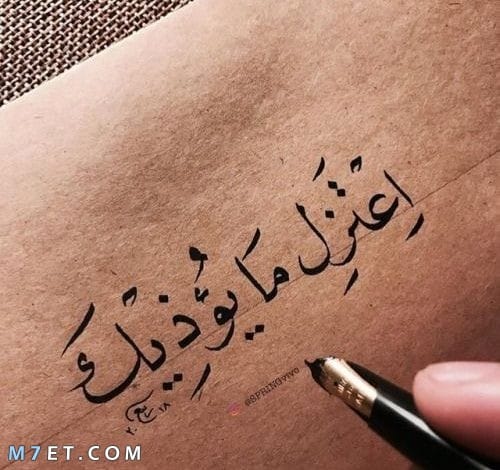 اِعْتَزِل مَا يُؤذِيْكَ
@SPRINGVIVO
M7ET.COM